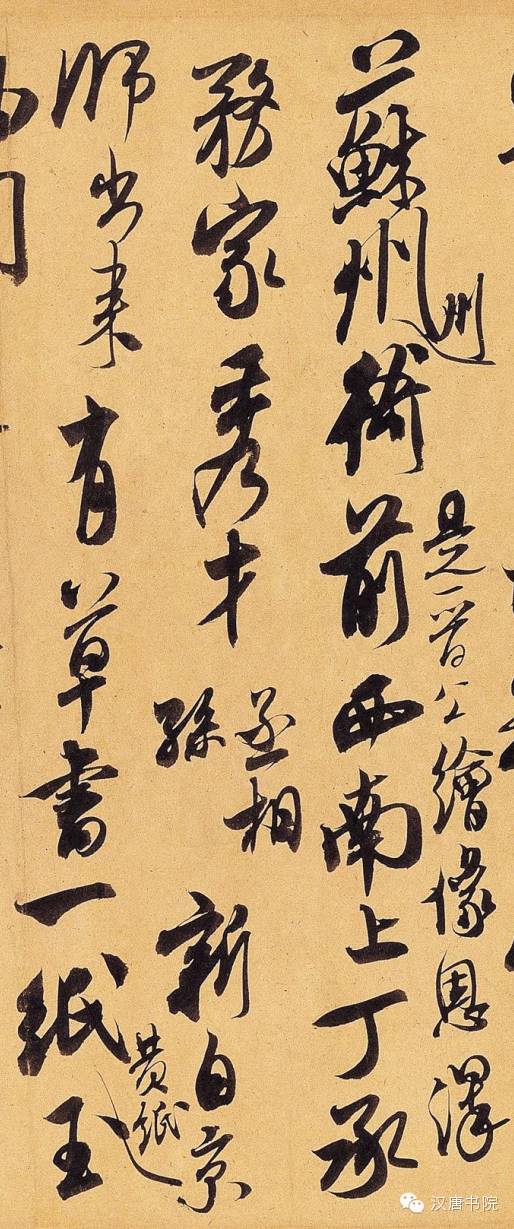 是晉公繪像恩澤
州
蘇州衙前西南上丁承
務家秀才
丞相
孫
新自京
黃紙
師出來有草書一紙玉
汉唐书院